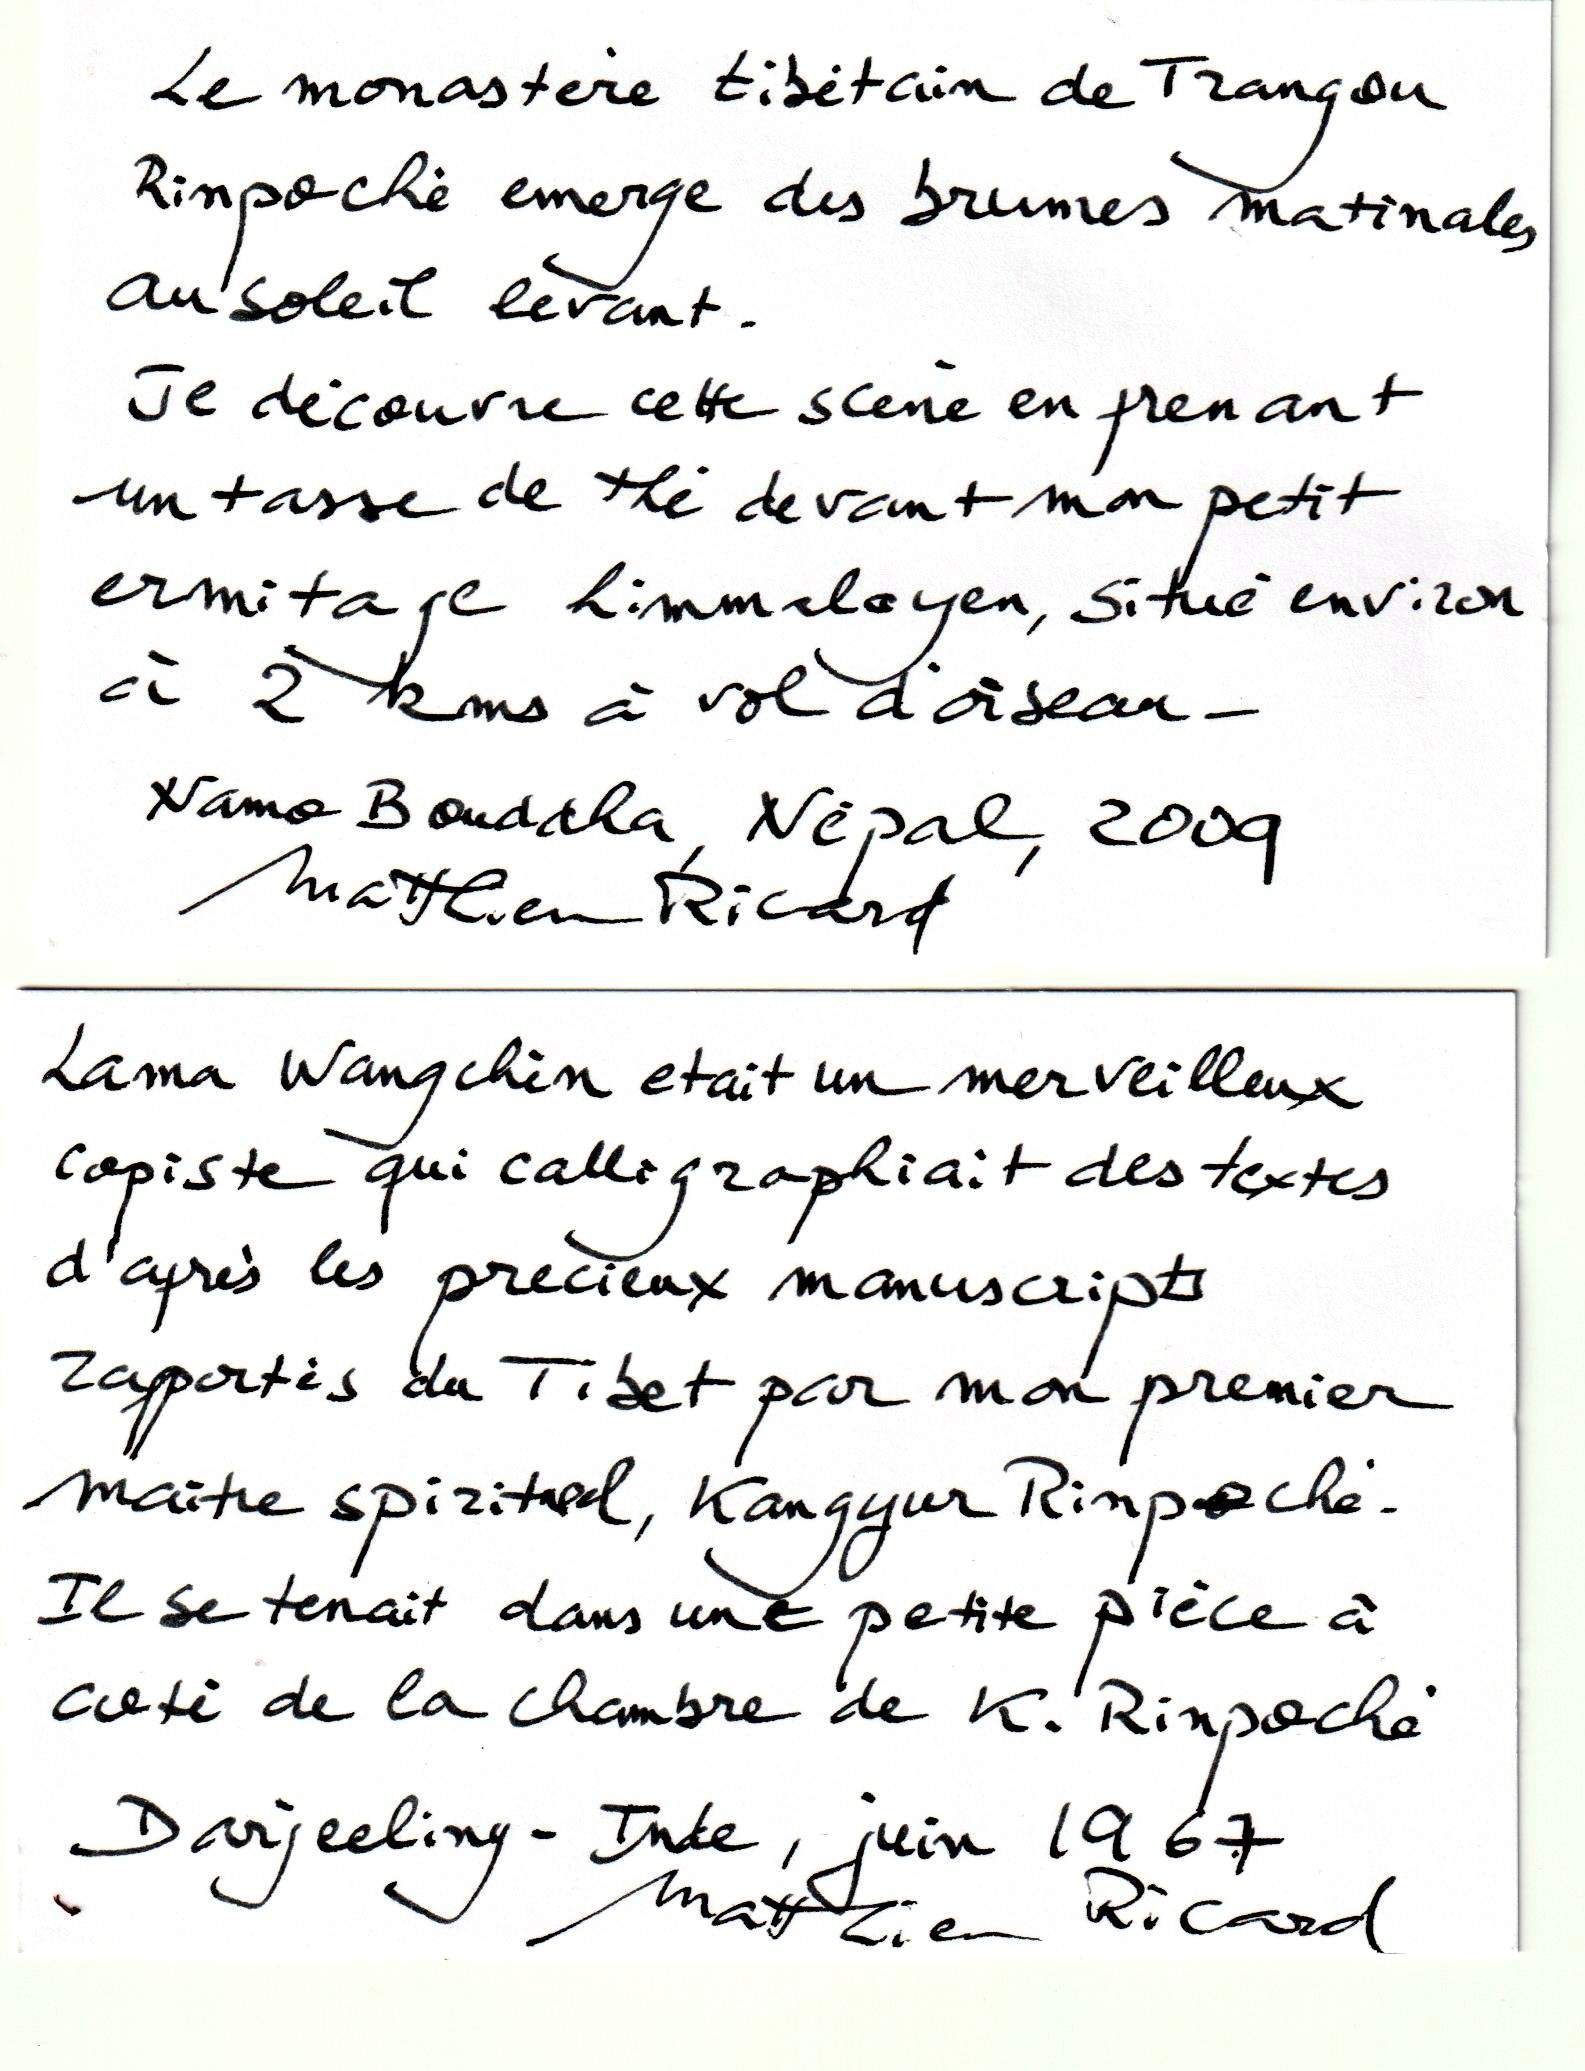 Le monastère tibétain de Trangou
Rinpoché emerge des brumes matinales
au soleil levant.
Je découvre cette scène en prenant
un tasse de thé devant mon petit
ermitage himmalayen, situé environ
à 2 kms à vol d'oiseau -
Namo Bouddha, Népal, 2009
Matthieu Ricard
Lama Wangchén etait un merveilleux
copiste qui calligraphiait des textes
d'après les precieux manuscripts
rapportés du Tibet par mon premier
maître spirituel, Kangyur Rinpoché.
Il se tenait dans une petite pièce à
coté de la chambre de K. Rinpoché
Darjeeling - Inde, juin 1967
Matthieu Ricard